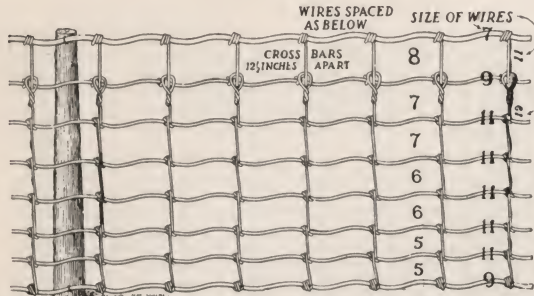 WIRES SPACED
AS BELOW
SIZE OF WIRES
7
11
8
CROSS BARS
12½ INCHES APART
9
7
11
7
11
6
11
6
11
5
11
5
9